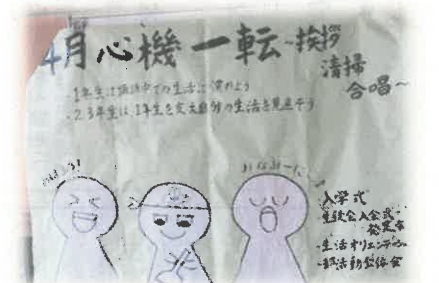 4月心機一転~挨拶
清掃
合唱~
・1年生は 中での生活に慣れよう
・2.3年生は、1年生を支え自分の生活を見直そう
おはよう!
入学式
生徒会入会式・
・生活オリエンテーション
・部活動集会